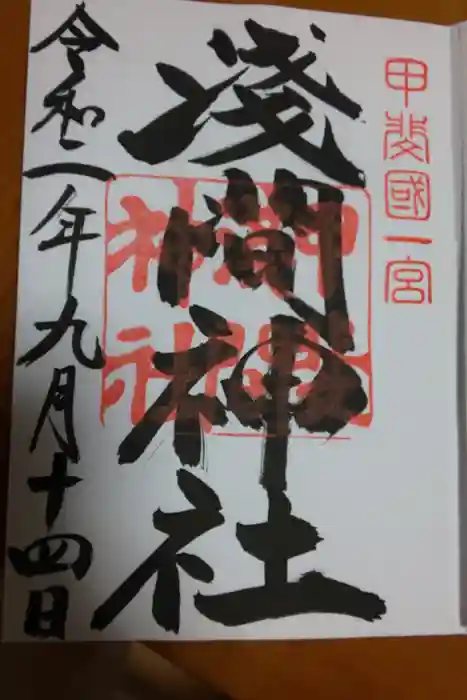 甲斐國一宮
淺間神社
令和二年九月十四日